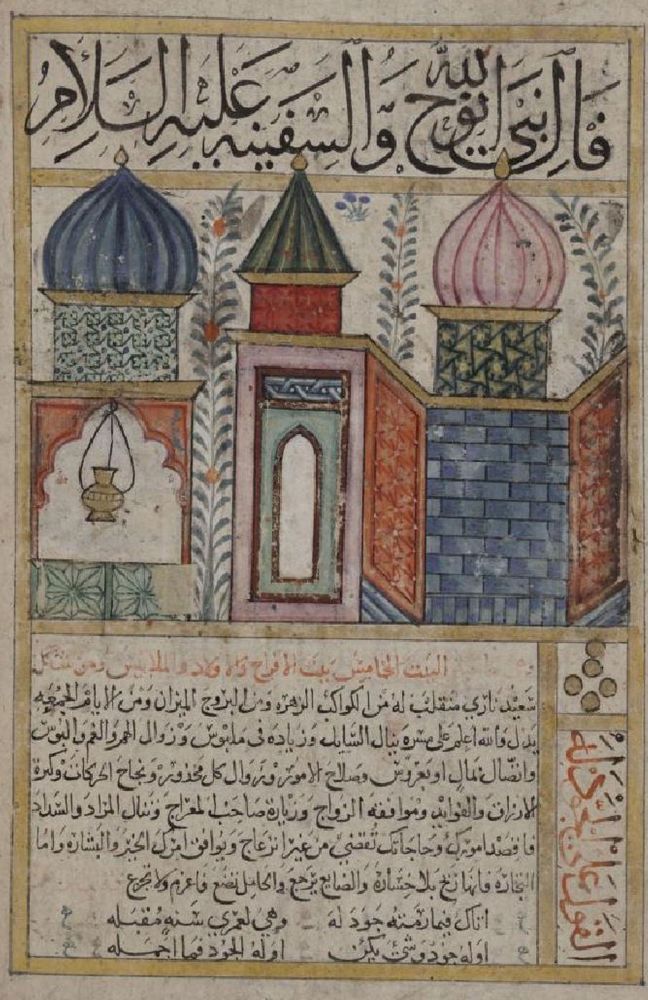 فال النبي نوح نبي الله والسفينه عليه السلام
البيت الخامس بيت الافراح والاولاد والملابس ومن شكل
سعيد ناري منقلب له من الكواكب الزهره ومن البروج الميزان ومن الايام الجمعه
يدل والله اعلم على مسره ينال السايل وزياده فى ملبوس وزوال الهم والغم والبوس
واتصال بمال او بعروس وصلاح الامور وزوال كل محذور ونجاح الحركات وكثرة
الارزاق والفوايد وموافقه الزواج وزيارة صاحب المعراج وتنال المراد والسداد
فاقصد امورك وحاجاتك تقضى من غير انزعاج ويوافق امرك الخير والبشاره واما
التجارة فانها ربح بلا خساره والضايع يرجع والحامل تضع فاعزم ولا تجزع
اتاك فيما رمته جود له وهي لعمري سنه مقبله
اوله جود وشئ يكن اوله الجود فما اجمله
القول على